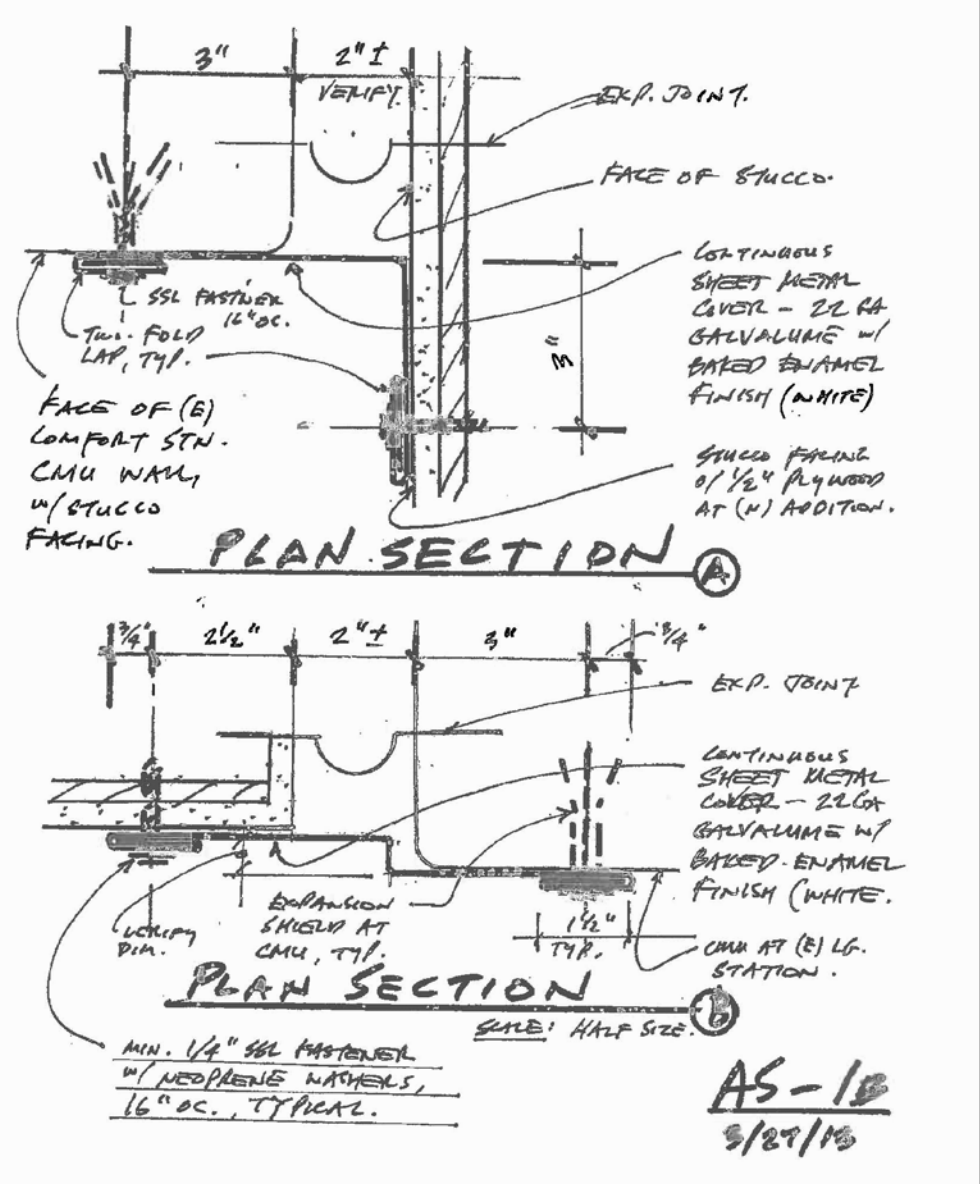 3"
2" ±
VERIFY.
EXP. JOINT.
FACE OF STUCCO.
CONTINUOUS
SHEET METAL
COVER - 22 GA
GALVALUME W/
BAKED ENAMEL
FINISH (WHITE)
SSL FASTNER
16" OC.
TWO. FOLD
LAP, TYP.
3"
FACE OF (E)
COMFORT STN.
CMU WALL,
W/ STUCCO
FACING.
STUCCO FACING
O/ 1/2" PLYWOOD
AT (N) ADDITION.
PLAN SECTION
A
3/4"
2 1/2"
2" ±
3"
3/4"
EXP. JOINT
CONTINUOUS
SHEET METAL
COVER - 22 GA
GALVALUME W/
BAKED-ENAMEL
FINISH (WHITE.
VERIFY
DIM.
EXPANSION
SHIELD AT
CMU, TYP.
1 1/2"
TYP.
CMU AT (E) LG.
STATION.
PLAN SECTION
B
SCALE: HALF SIZE.
MIN. 1/4" SSL FASTENER
W/ NEOPRENE WASHERS,
16" OC., TYPICAL.
AS-1B
3/27/13